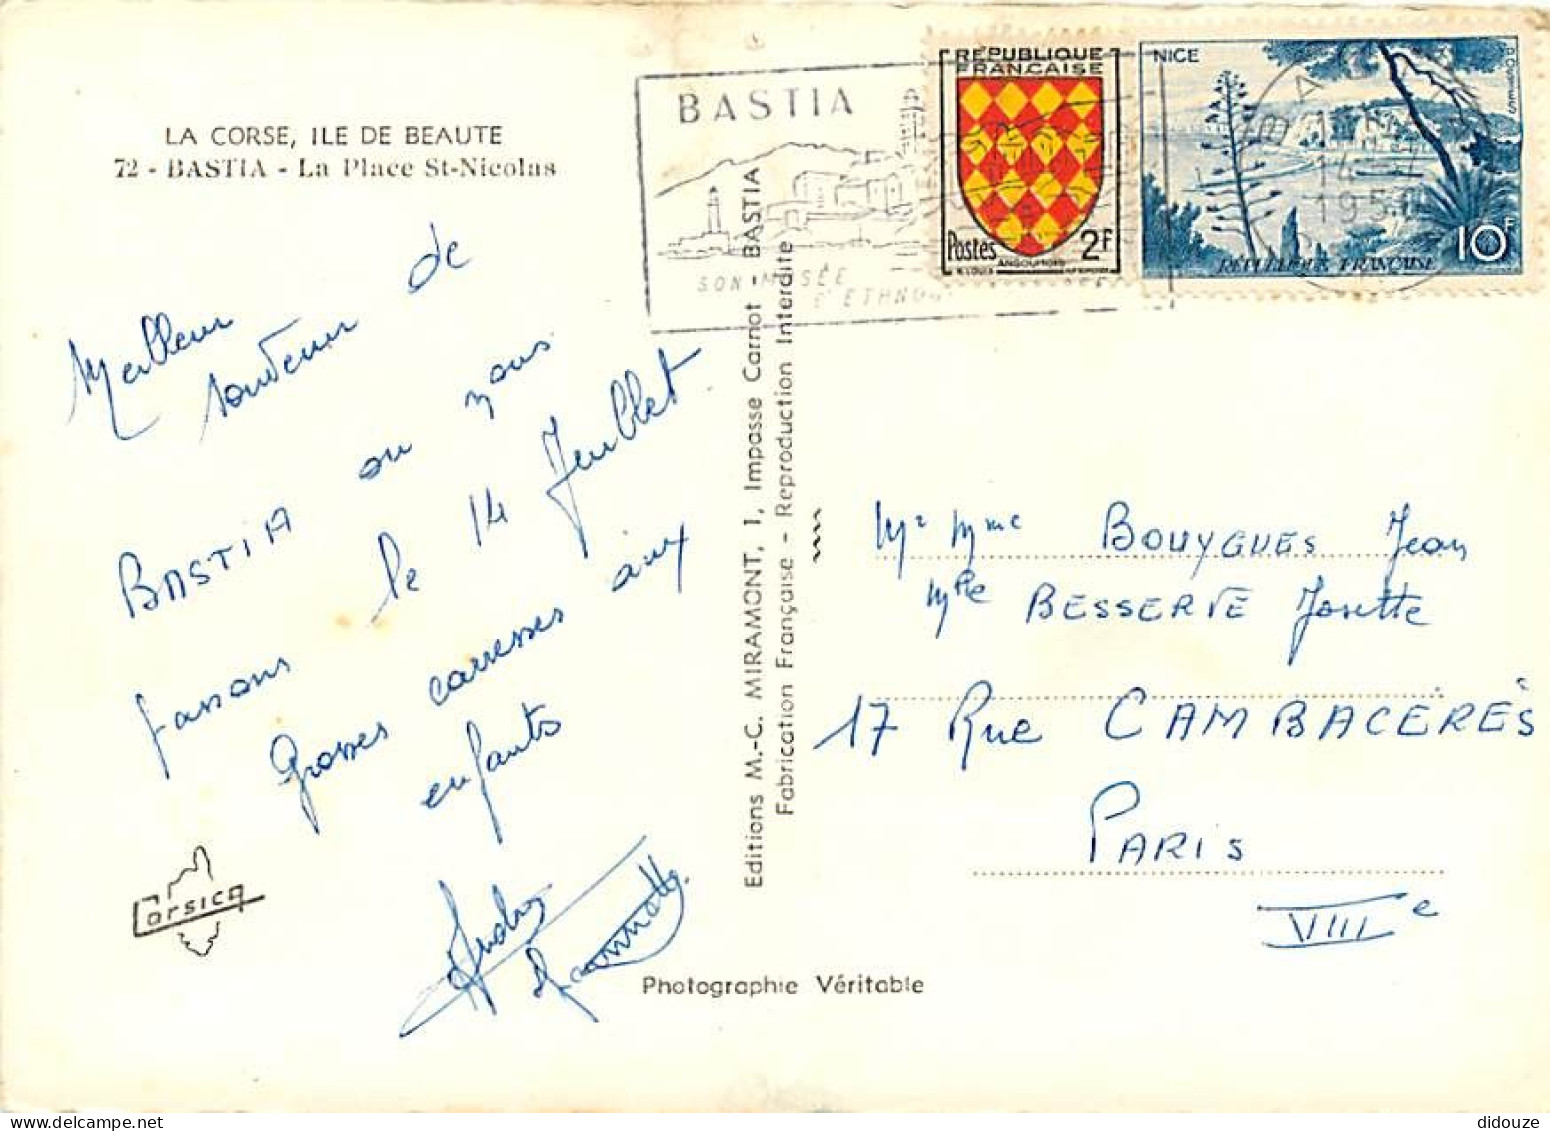 LA CORSE, ILE DE BEAUTE
72 - BASTIA - La Place St-Nicolas
Meilleur souvenir de
BASTIA ou nous
passons le 14 Juillet.
Grosses carresses aux
enfants
Corsica
Editions M.-C. MIRAMONT, 1, Impasse Carnot - BASTIA
Fabrication Française - Reproduction Interdite
Photographie Véritable
BASTIA
SON MUSÉE
D'ETHNO
RÉPUBLIQUE
FRANÇAISE
Postes 2F
ANGOUMOIS
R. LOUIS
NICE
10F
RÉPUBLIQUE FRANÇAISE
Mr Mme BOUYGUES Jean
Mlle BESSERVE Josette
17 Rue CAMBACÉRÈS
PARIS
VIIIe
didouze